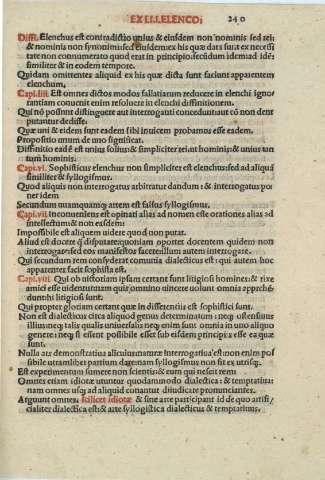 EX LI. ELENCO: 240
Diffi. Elenchus est contradictio unius & eiusdem non nominis sed rei:
& nominis non synonimi: sed eiusdem ex his quæ data sunt ex necessi
tate non connumerato quod erat in principio: secundum idem ad idem
similiter & in eodem tempore.
Quidam omittentes aliquid ex his quæ dicta sunt faciunt apparentem
elenchum.
Capi.iiii. Est omnes dictos modos fallatiarum reducere in elenchi igno
rantiam conuenit enim resoluere in elenchi diffinitionem.
Qui nō possunt distinguere aut interroganti concedunt aut cū non dent
putantur dedisse.
Quæ uni & eidem sunt eadem sibi inuicem probamus esse eadem.
Propositio unum de uno significat.
Diffinitio eadē est unius solius & simpliciter rei: ut hominis: & unius tan
tum hominis.
Capi.vi. Sophisticus elenchus non simpliciter est elenchus: sed ad aliquē
similiter & syllogismus.
Quod aliquis non interrogatus arbitratur dandum: & interrogatus po
ner idem
Secundum nunquam artem est falsus syllogismus.
Capi.vii. Inconueniens est opinari alias ad nomen este orationes alias ad
intellectum & non eas idem:
Impossibile est aliquem uidere quod non putat.
Aliud est docere q̄ disputare: quoniam oportet docentem quidem non
interrogare: sed eos manifestos facere: illum autem interrogare.
Qui secundum rem considerat comunia dialecticus est: qui autem hoc
apparenter facit sophista est.
Capi.viii. Qui ob uictoriam ipsam certant sunt litigiosi homines: & rixæ
amici esse uidentur: nam quicumque omnino uincere uolunt omnia apprehē
dunt: hi litigiosi sunt.
Qui propter gloriam certant quæ in differentiis est sophistici sunt.
Non est dialecticus circa aliquod genus determinatum: neq; ostensiuus
illius: neq; talis qualis uniuersalis neq; enim sunt omnia in uno aliquo
genere: neq; si essent possibile esset sub eisdem principiis esse ea quæ
sunt.
Nulla ars demonstratiua alicuius naturæ interrogatiua est: non enim pos
sibile utramlibet partium dare: nam syllogismus non fit ex utrisq;.
Est experimentum sumere non scientis: & eum qui nescit rem:
Omnes etiam idiotæ utuntur quodammodo dialectica: & temptatiua:
nam omnes usq; ad aliquid conantur diiudicare pronunciantes.
Arguunt omnes, scilicet idiotæ & sine arte participant id de quo artifi-
cialiter dialectica est: & arte syllogistica dialecticus & temptatiuus.